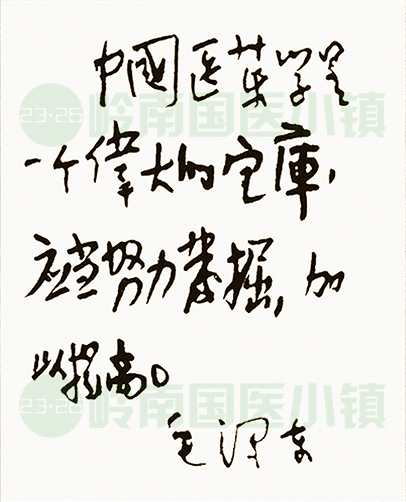 中國医药学是
一个偉大的宝庫，
应当努力发掘，加
以提高。
毛泽东
23·26 岭南国医小镇
23·26 岭南国医小镇